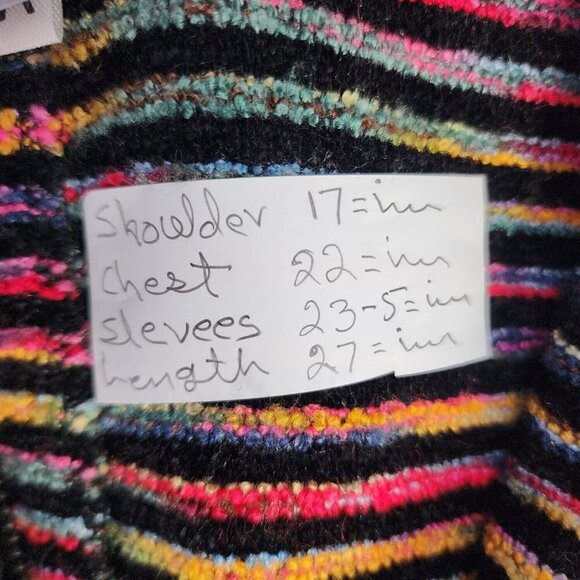 Shoulder 17=inn
Chest 22=inn
slevees 23-5=inn
Length 27=inn